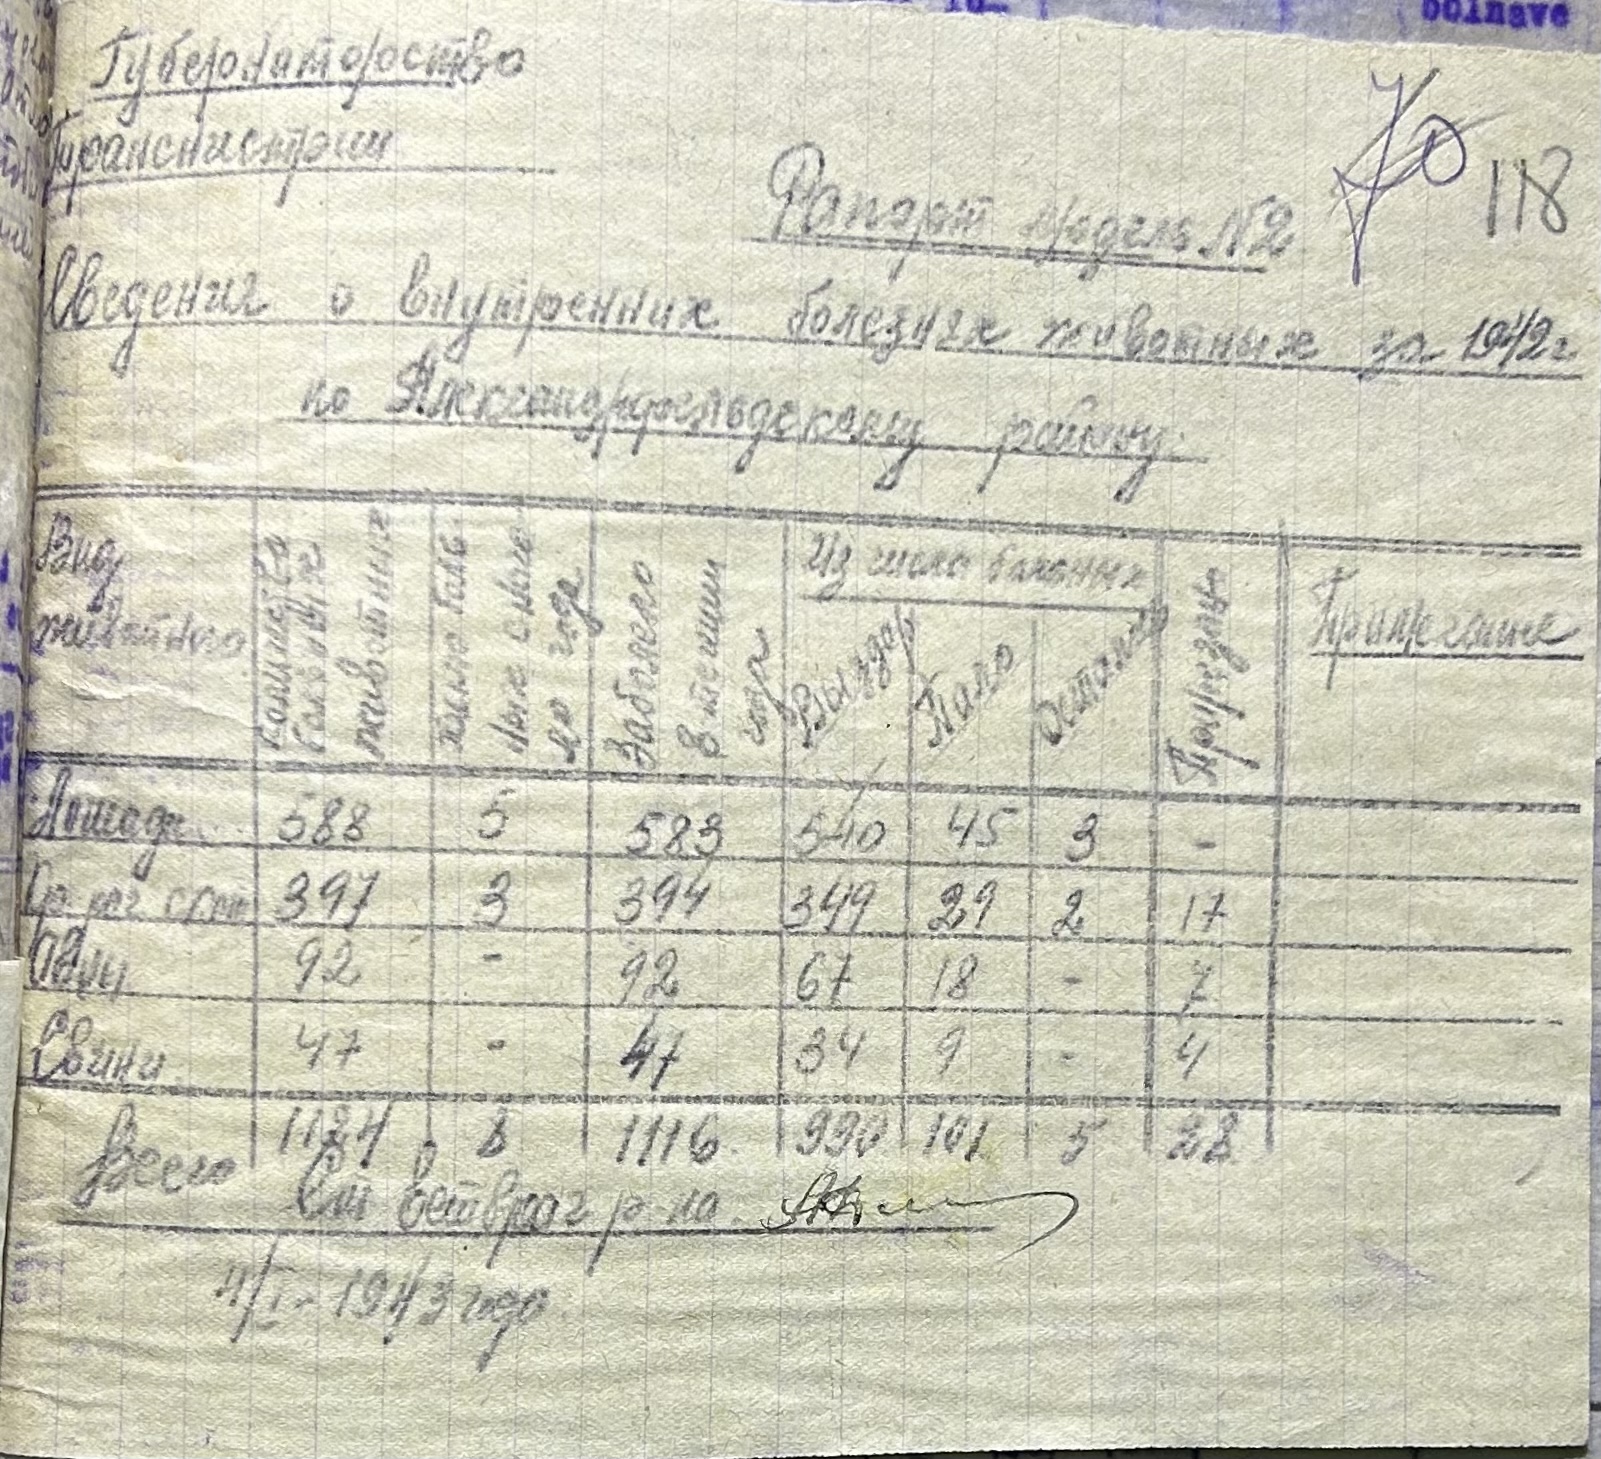 bolnave
Губернаторство
Транснистрии
118
Рапорт модель №2
Сведения о внутренних болезнях животных за 1942 г
по Александрфельдскому району.
Вид животного
Количество болевших животных
Заболело в течении года
Из числа больных
Выздор
Пало
Осталось
Прирезано
Примечание
Лошади 588 5 583 540 45 3 -
Кр. рог. скот 397 3 394 349 29 2 17
Овцы 92 - 92 67 18 - 7
Свини 47 - 47 34 9 - 4
Всего 1124 8 1116 990 101 5 28
Ст ветврач р-на
4/I - 1943 года.